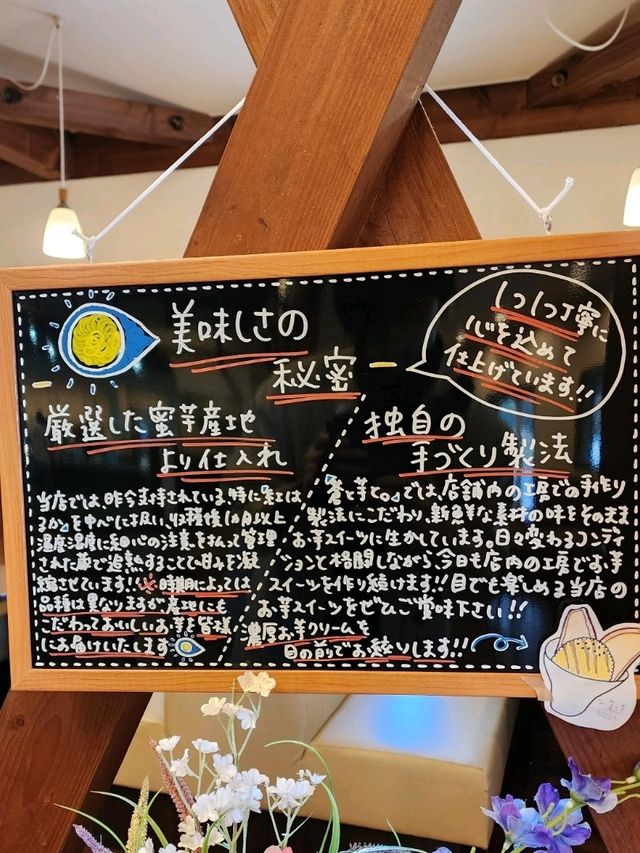 美味しさの
秘密
1つ1つ丁寧に
心を込めて
仕上げています!!
厳選した蜜芋産地
より仕入れ
当店では、昨今支持されている、特に紅は
るか』を中心に扱い、収穫後1カ月以上
温度・湿度に細心の注意を払って管理
された蔵で追熟することで甘みを凝
縮させています!!※時期によっては
品種は異なりますが、産地にも
こだわっておいしいお芋を皆様
にお届けいたします
独自の
手づくり製法
芋と。』では、店舗内の工房での手作り
製法にこだわり、新鮮な素材の味をそのまま
お芋スイーツに生かしています。日々変わるコンディ
ションと格闘しながら、今日も店内の工房です、手
スイーツを作り続けます!!目でも楽しめる当店の
お芋スイーツをぜひご賞味下さい!!
濃厚お芋クリームを
目の前でお絞りします!!